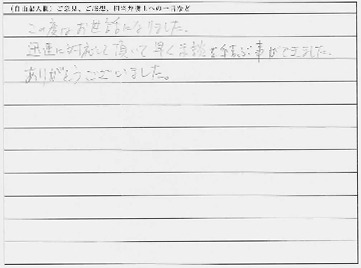 (自由記入欄) ご意見、ご感想、担当弁護士への一言など
この度はお世話になりました。
迅速に対応して頂いて早く示談を結ぶ事ができました。
ありがとうございました。